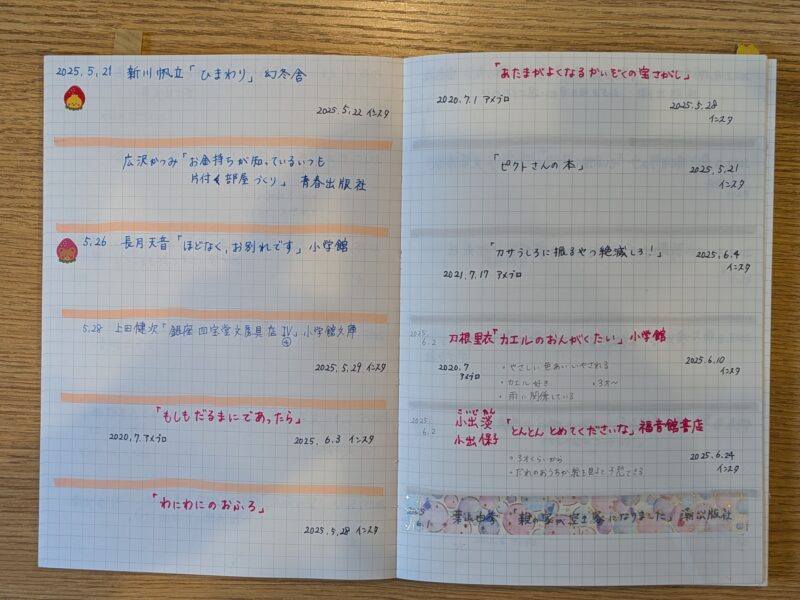 2025.5.21 新川帆立「ひまわり」幻冬舎
2025.5.22 インスタ
広沢かつみ「お金持ちが知っているいつも
片付く部屋づくり」 青春出版社
5.26 長月天音「ほどなく、お別れです」小学館
5.28 上田健次「銀座四宝堂文房具店Ⅳ」小学館文庫
④
2025.5.29 インスタ
「もしもだるまにであったら」
2020.7.アメブロ 2025.6.3 インスタ
「わにわにのおふろ」
2025.5.28 インスタ
「あたまがよくなるかいぞくの宝さがし」
2020.7.1 アメブロ 2025.5.28
インスタ
「ピクトさんの本」 2025.5.21
インスタ
「カサうしろに振るやつ絶滅しろ!」 2025.6.4
インスタ
2021.7.17 アメブロ
2025.
6.2 刀根里衣「カエルのおんがくたい」小学館
2020.7
アメブロ
・やさしい色あい いやされる
・カエル好き ・3才〜
・雨に関係している
2025.6.10
インスタ
2025.
6.2
こいで たん
小出淡
小出保子
「とんとん とめてくださいな」福音館書店
・3才くらいから
・だれのおうちか 予想できる
2025.6.24
インスタ
2025
6.1 葉山由季 「親の家が空き家になりました」 出版社